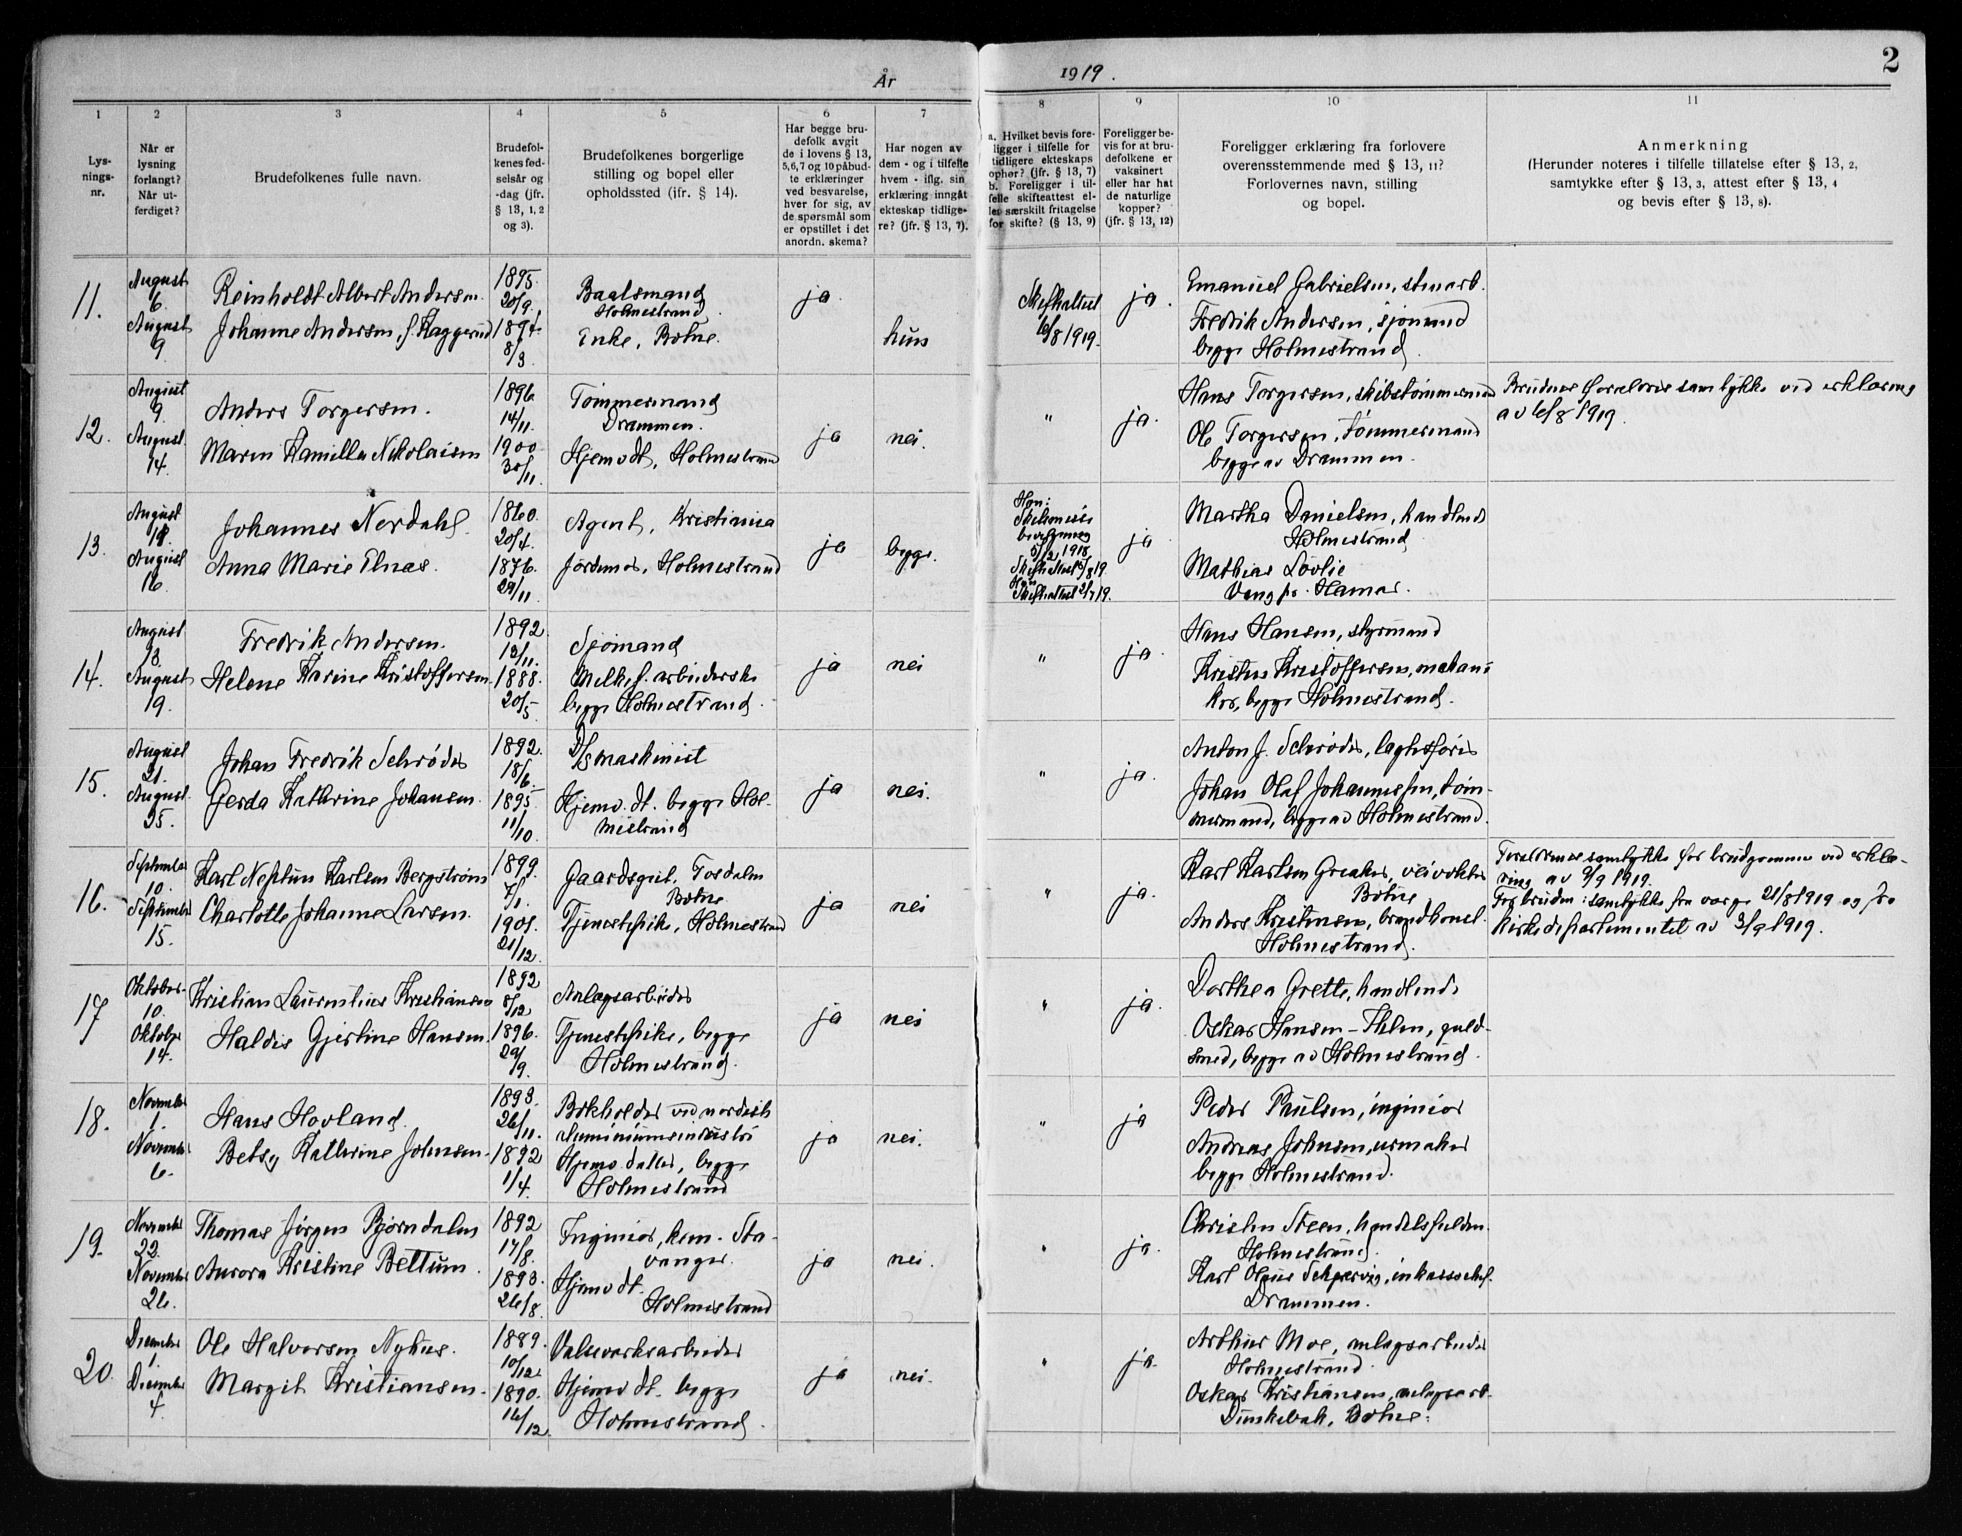 År 1919.
2
1 2 3 4 5 6 7 8 9 10 11
Lys-
nings-
nr.
Når er
lysning
forlangt?
Når ut-
ferdiget?
Brudefolkenes fulle navn.
Brudefol-
kenes fød-
selsår og
-dag (jfr.
§ 13, 1, 2
og 3).
Brudefolkenes borgerlige
stilling og bopel eller
opholdssted (jfr. § 14).
Har begge bru-
defolk avgit
de i lovens § 13,
5,6,7 og 10 påbud-
te erklæringer
ved besvarelse,
hver for sig, av
de spørsmål som
er opstillet i det
anordn. skema?
Har nogen av
dem - og i tilfelle
hvem - iflg. sin
erklæring inngåt
ekteskap tidlige-
re? (jfr. § 13, 7).
a. Hvilket bevis fore-
ligger i tilfelle for
tidligere ekteskaps
ophør? (jfr. § 13, 7)
b. Foreligger i til-
felle skifteattest el-
ler særskilt fritagelse
for skifte? (§ 13, 9)
Foreligger be-
vis for at bru-
defolkene er
vaksinert
eller har hat
de naturlige
kopper?
(jfr. § 13, 12)
Foreligger erklæring fra forlovere
overensstemmende med § 13, 11?
Forlovernes navn, stilling
og bopel.
Anmerkning
(Herunder noteres i tilfelle tillatelse efter § 13, 2,
samtykke efter § 13, 3, attest efter § 13, 4
og bevis efter § 13, 8).
11.
August
6.
August
9.
Reinholdt Albert Andersen.
Johanne Andersen, f. Haggerud
1895.
20/9.
1894.
8/3.
Baatsmand
Holmestrand.
Enke, Botne.
ja.
hun
Skifteattest
6/8 1919.
ja.
Emanuel Gabrielsen, stuarb.
Fredrik Andersen, sjømand
begge Holmestrand.
12.
August
9.
August
14.
Anders Torgersen.
Maren Kamilla Nikolaisen
1896
14/11.
1900
30/11.
Tømmermand
Drammen.
Hjemv. dt., Holmestrand
ja
nei.
"
ja.
Hans Torgersen, skibstømmermand
Ole Torgersen, tømmermand
begge av Drammen.
Brudens forældres samtykke ved erklæring
av 6/8 1919.
13.
August
August
16.
Johannes Nordahl.
Anna Marie Elnas.
1860.
20/4.
1876.
29/11.
Agent, Kristiania
Jordmor, Holmestrand
ja
begge.
Skifteattest 2/7 19.
ja
Martha Danielsen, handlende
Holmestrand
Mathias Løvlie
Vang pr. Hamar.
14.
August
18.
August
19.
Fredrik Andersen.
Helene Karine Kristoffersen.
1892.
13/11.
1888.
20/5.
Sjømand
Melkef. arbeiderske
begge Holmestrand.
ja
nei
"
ja.
Hans Hansen, styrmand
Kristen Kristoffersen, mekani
ker, begge Holmestrand.
15.
August
21.
August
25.
Johan Fredrik Schrøder
Gerda Kathrine Johansen.
1892.
18/6.
1895.
11/10.
D/S maskinist
Hjemv. dt. begge Hol-
mestrand
ja
nei.
"
ja.
Anton J. Schrøder, lagtsfører
Johan Olaf Johannessen, tøm-
mermand, begge av Holmestrand.
16.
September
10.
September
15.
Karl Neptun Karlsen Bergstrøm
Charlotte Johanne Larsen.
1899.
7/1.
1901.
21/12.
Gaardsgut, Fosdalen
Botne
Tjenestepike, Holmestrand
ja
nei
"
ja.
Karl Karlsen Greaker, veivokter
Botne
Anders Kristensen, brandkonst.
Holmestrand.
Forældrenes samtykke for brudgommen ved erklæ-
ring av 9/9 1919.
For bruden: samtykke fra verge 21/8 1919 og fra
kirkedepartementet av 3/9 1919.
17
Oktober
10.
Oktober
14.
Kristian Laurentius Kristiansen
Haldis Gjertine Hansen.
1892
8/12
1896.
29/9.
Anlægsarbeider
Tjenestepike, begge
Holmestrand.
ja
nei
"
ja.
Dorthea Grette, handlende
Oskar Hansen-Thelen, guld-
smed, begge av Holmestrand.
18.
November
1.
November
6.
Hans Hovland.
Betsy Kathrine Johnsen.
1893.
26/11.
1892
1/4.
Bokholder ved nordisk
aluminiumsindustri
Hjemv. datter, begge
Holmestrand
ja
nei.
"
ja
Peder Paulsen, ingeniør
Andreas Johnsen, urmaker
begge Holmestrand.
19.
November
22.
November
26.
Thomas Jørgen Bjørndalen
Aurora Kristine Bettum.
1892
17/8.
1893.
26/8.
Ingeniør, kem. Sta-
vanger.
Hjemv. dt.
Holmestrand
ja
nei.
"
ja.
Christen Steen, handelsfuldm.
Holmestrand.
Karl Olaus inkassochef.
Drammen.
20.
December
1.
December
4.
Ole Halvorsen Nyhus.
Margit Kristiansen.
1889.
10/12
1890.
16/12.
Valseverksarbeider
Hjemv. dt. begge
Holmestrand.
ja
nei.
"
ja.
Arthur Moe, anlegsarbeider
Holmestrand.
Oskar Kristiansen, anlegsarb.
Dunkebæk, Botne.